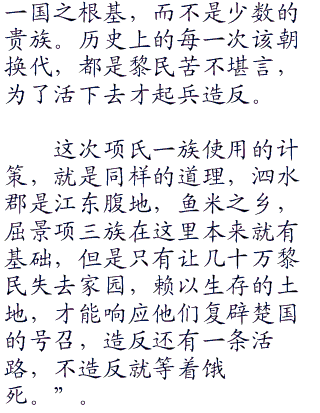 一国之根基，而不是少数的
贵族。历史上的每一次该朝
换代，都是黎民苦不堪言，
为了活下去才起兵造反。
这次项氏一族使用的计
策，就是同样的道理，泗水
郡是江东腹地，鱼米之乡，
屈景项三族在这里本来就有
基础，但是只有让几十万黎
民失去家园，赖以生存的土
地，才能响应他们复辟楚国
的号召，造反还有一条活
路，不造反就等着饿
死。”。